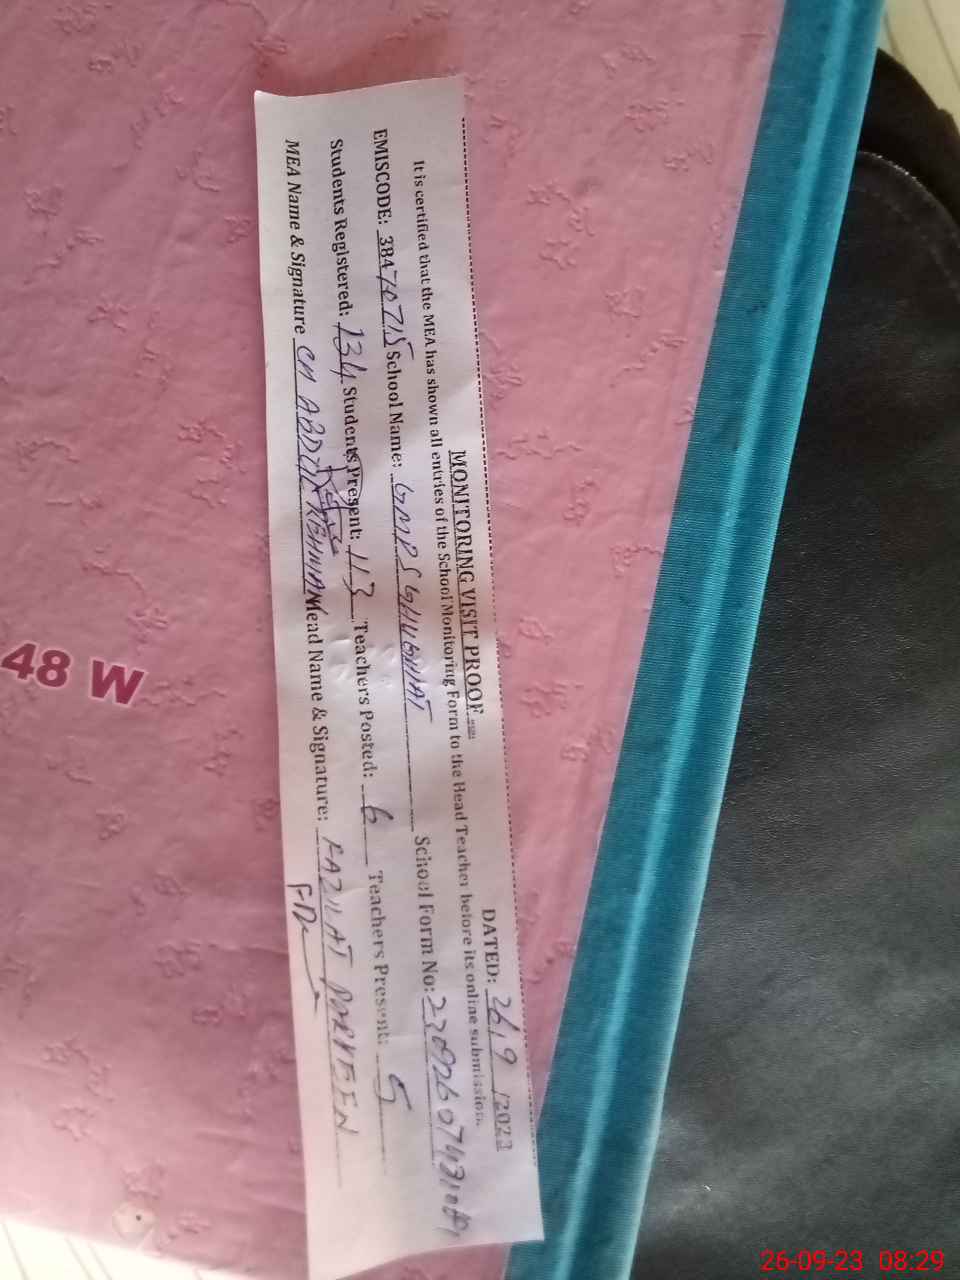 MONITORING VISIT PROOF
DATED: 26/9/2023
It is certified that the MEA has shown all entries of the School Monitoring Form to the Head Teacher before its online submission.
EMISCODE: 38470215 School Name: GMPS GHUGHIAT School Form No:
Students Registered: 134 Students Present: 113 Teachers Posted: 6 Teachers Present: 5
MEA Name & Signature CH ABDUL REHMAN Head Name & Signature: FAZILAT PARVEEN
48 W
26-09-23 08:29